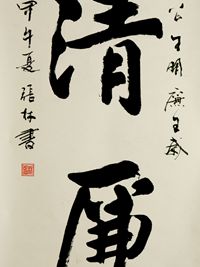 公生明廉生威
清廉
甲午夏張林書